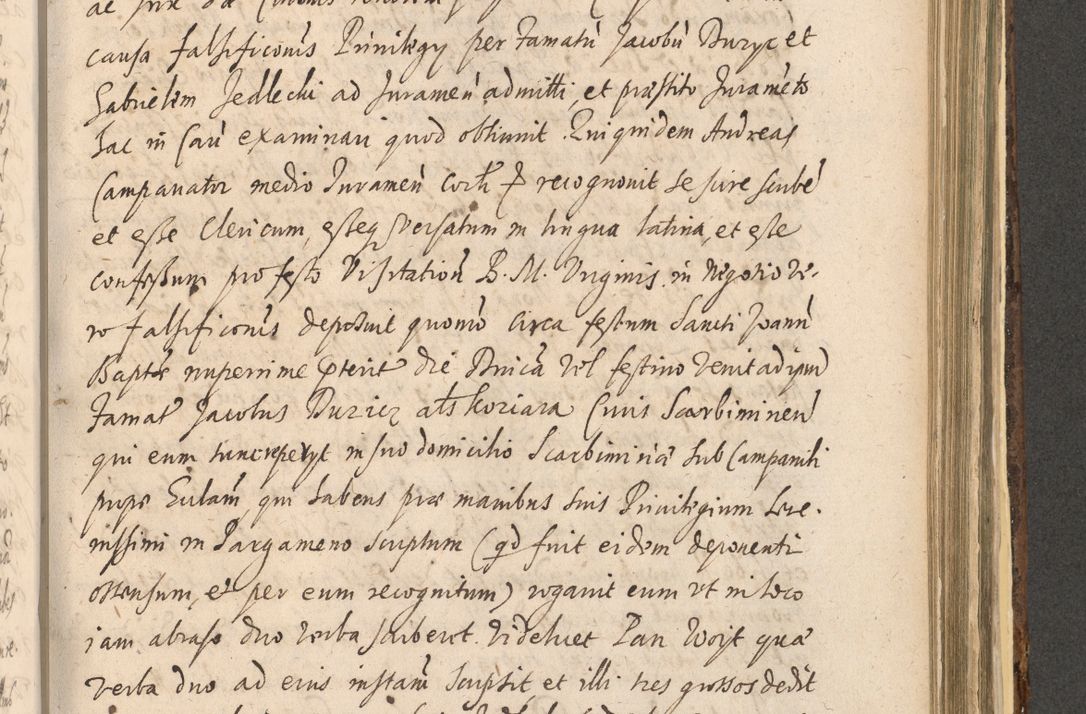 causa falsificoni͞s Priuilegy per famatu͞ Jacobu͞ Duryc et
Gabrielem Jedlecki ad Jurameṅ admitti, et præstito Juram͞eto
hac in Cau͞ examinari quod obtinuit. Qui quidem Andreas
Campanator medio Jurameṅ recognouit se scire scribe͞
et esse Clericum, esseq versatum in lingua latina, et esse
confessum pro festo Visitation͞ B. M. Virginis. in Negotio ve-
ro falsificoni͞s deposuit quomo͞ circa festum Sancti Joann͞
Bapt͞æ nuperrime die Dnica͞ vel festiuo venit ad ipsu͞
famat Jacobus Duricz als Koziara Ciuis Scarbimireṅ
qui eum tunc reperyt in suo domicilio Scarbimiriæ sub Campanili
prope Eulam͞, qui habens præ manibus suis Priuilegium Sere-
nissimi in Pargameno scriptum (qd fuit eidem deponenti
ostensum, et per eum recognitum) rogauit eum vt in loco
iam abraso duo verba scriberet. Videlicet Pan Woyt quæ
verba duo ad eius instam͞ scripsit et illi tres grossos dedit